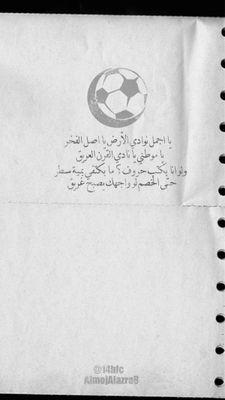 يا اجمل نوادي الأرض يا اصل الفخر
يا موطني يا نادي القرن العريق
ولو انا بكتب حروف؟ ما يكتفي بمية سطر
حتى الخصم لو واجهك يصبح غريق
@i4hfc
AlmojAlazra8